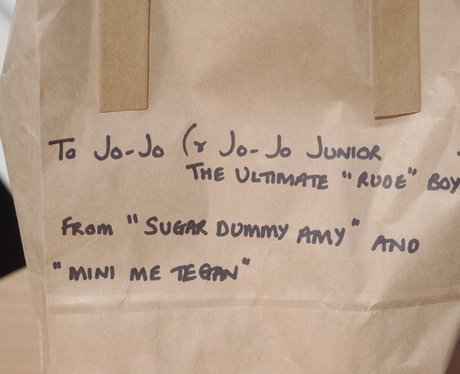 To Jo-Jo (& Jo-Jo JUNIOR
THE ULTIMATE "RUDE" BOY
FROM "SUGAR DUMMY AMY" AND
"MINI ME TEGAN"